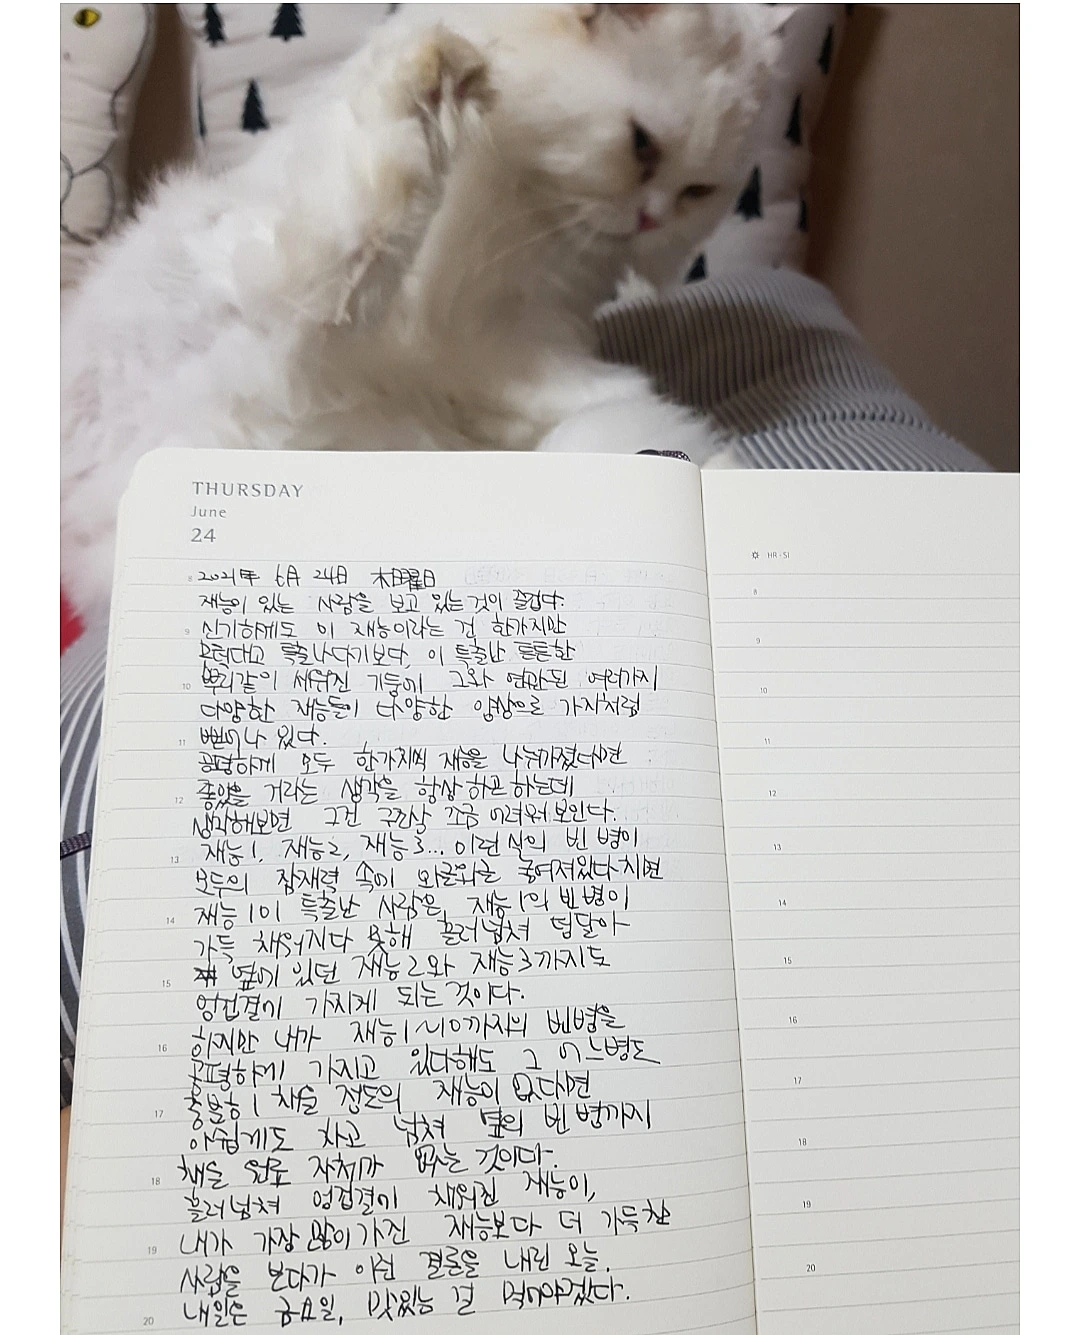 THURSDAY
June
24
HR · SI
2021年 6月 24日 木曜日
재능이 있는 사람을 보고 있는 것이 즐겁다.
신기하게도 이 재능이라는 건 한가지만
특출나다기보다, 이 특출난 튼튼한
뿌리같이 세워진 기둥에 그와 연관된 여러가지
다양한 재능들이 다양한 양상으로 가지처럼
뻗어나 있다.
공평하게 모두 한가지씩 재능을 나눠가졌다면
좋았을 거라는 생각을 항상 하곤 하는데
생각해보면 그건 구조상 조금 어려워보인다.
재능1, 재능2, 재능3... 이런 식의 빈 병이
모두의 잠재력 속에 와글와글 놓여져있다 치면
재능1이 특출난 사람은, 재능1의 빈 병이
가득 채워지다 못해 흘러넘쳐 덩달아
옆에 있던 재능2와 재능3까지도
엉겁결에 가지게 되는 것이다.
하지만 내가 재능1~10까지의 빈병을
공평하게 가지고 있다해도 그 어느병도
충분히 채울 정도의 재능이 없다면
아쉽게도 차고 넘쳐 옆의 빈 병까지
채울 원료 자체가 없는 것이다.
흘러넘쳐 엉겁결에 채워진 재능이,
내가 가장 많이 가진 재능보다 더 가득찬
사람을 보다가 이런 결론을 내린 오늘.
내일은 금요일, 맛있는 걸 먹어야겠다.
8
9
10
11
12
13
14
15
16
17
18
19
20
8
9
10
11
12
13
14
15
16
17
18
19
20